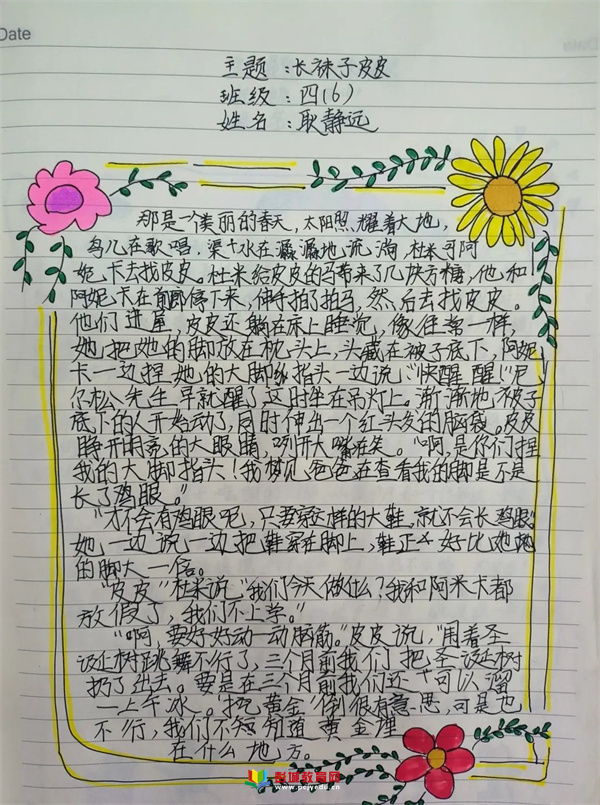 Date
主题：长袜子皮皮
班级：四(6)
姓名：耿静远
那是一个美丽的春天，太阳照耀着大地，
鸟儿在歌唱，渠十水在潺潺地流淌，杜米可阿
妮卡去找皮皮。杜米给皮皮的马带来了几块方糖，他和
阿妮卡在前廊停下来，伸手拍了拍马，然后去找皮皮。
他们进屋，皮皮还躺在床上睡觉，像往常一样，
她把她的脚放在枕头上，头藏在被子底下，阿妮
卡一边捏她的大脚指头一边说："快醒醒！"尼
尔松先生早就醒了这时坐在吊灯上。渐渐地被子
底下的人开始动了，同时伸出一个红头发的脑袋。皮皮
睁开明亮的大眼睛，咧开大嘴在笑。"啊，是你们捏
我的大脚指头！我梦见爸爸在查看我的脚是不是
长了鸡眼。"
"才不会有鸡眼呢，只要穿这样的大鞋，就不会长鸡眼"
她一边说一边把鞋穿在脚上，鞋正好比她
的脚大一倍。
"皮皮"杜米说"我们今天做什么？我和阿米卡都
放假了，我们不上学。"
"啊，要好好动一动脑筋。"皮皮说，"围着圣
诞树跳舞不行了，三个月前我们把圣诞树
扔了出去。要是在三个月前我们还可以溜
一上午冰。挖黄金倒很有意思，可是也
不行，我们不知道黄金埋
在什么地方。
教育网
www.pcjyedu.cn